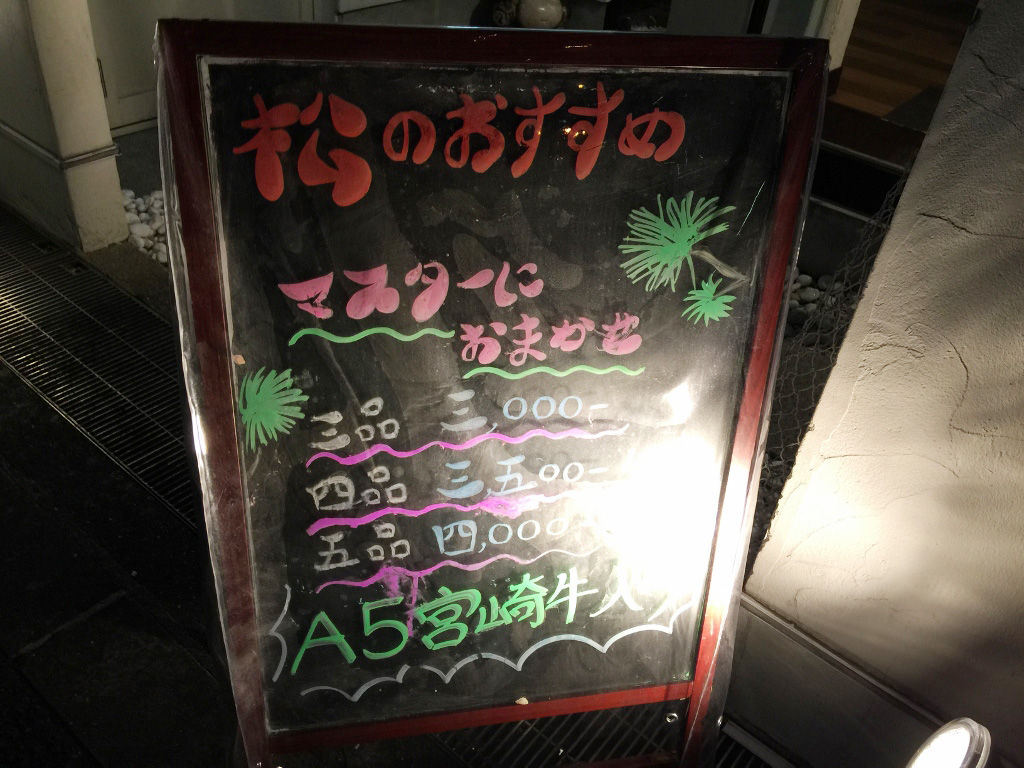 松のおすすめ
マスターに
おまかせ
三品 三,000-
四品 三五00-
五品 四,000-
A5宮崎牛入